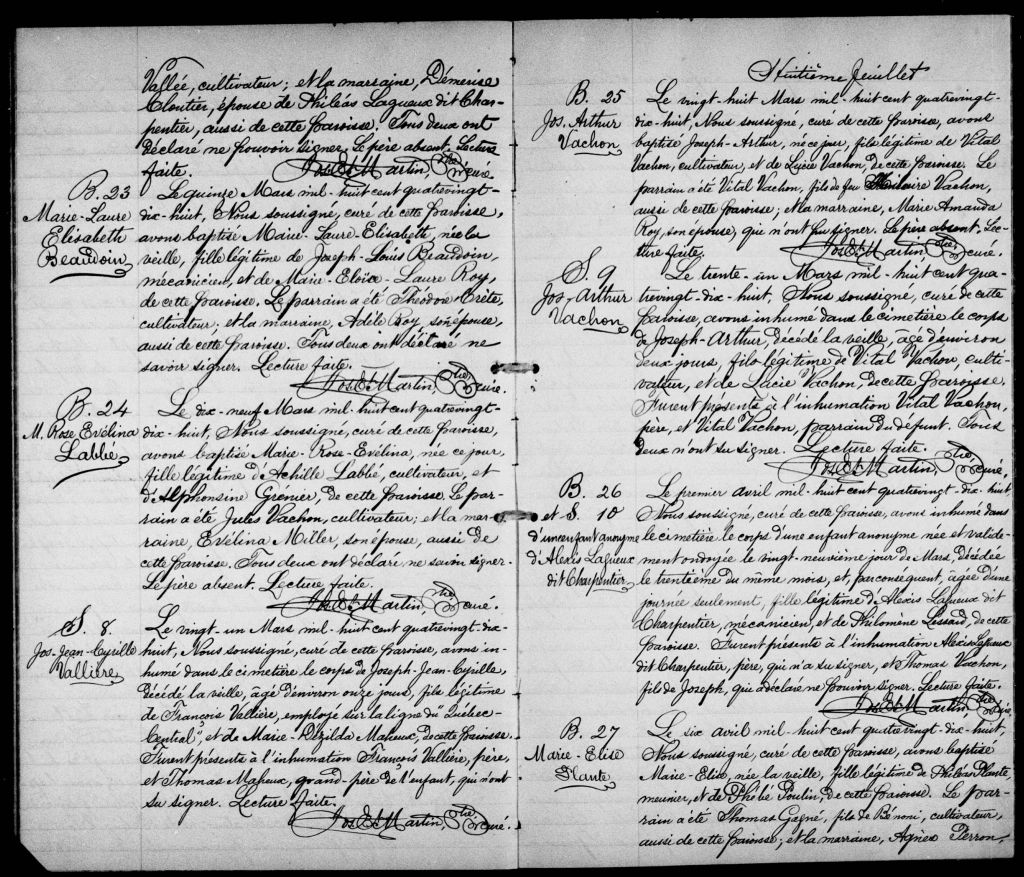 Vallée, cultivateur; et la marraine, Démerise
Cloutier, épouse de Philéas Lagueux dit Char-
pentier, aussi de cette paroisse. Tous deux ont
déclaré ne pouvoir signer. Le père absent. Lecture
faite.
Jos. E. Martin, Ptre curé
B. 23
Marie-Laure
Elisabeth
Beaudoin
Le quinze Mars mil-huit cent quatrevingt-
dix-huit, Nous soussigné, curé de cette paroisse,
avons baptisé Marie-Laure-Elisabeth, née la
veille, fille légitime de Joseph-Louis Beaudoin,
mécanicien, et de Marie-Eloïse-Laure Roy,
de cette paroisse. Le parrain a été Théodore Crête,
cultivateur; et la marraine, Adèle Roy, son épouse,
aussi de cette paroisse. Tous deux ont déclaré ne
savoir signer. Lecture faite.
Jos. E. Martin, Ptre curé.
B. 24
M. Rose Evélina
Labbé
Le dix-neuf Mars mil-huit cent quatrevingt-
dix-huit, Nous soussigné, curé de cette paroisse,
avons baptisé Marie-Rose-Evélina, née ce jour,
fille légitime d'Achille Labbé, cultivateur, et
d'Alphonsine Grénier, de cette paroisse. Le par-
rain a été Jules Vachon, cultivateur; et la mar-
raine, Evélina Miller, son épouse, aussi de
cette paroisse. Tous deux ont déclaré ne savoir signer.
Le père absent. Lecture faite.
Jos. E. Martin, Ptre curé.
S. 8.
Jos. Jean-Cyrille
Vallière
Le vingt-un Mars mil-huit cent quatrevingt-dix-
huit, Nous soussigné, curé de cette paroisse, avons in-
humé dans le cimetière le corps de Joseph-Jean-Cyrille,
décédé la veille, âgé d'environ onze jours, fils légitime
de François Vallière, employé sur la ligne du "Québec-
Central", et de Marie-Maheux, de cette paroisse.
Furent présents à l'inhumation François Vallière, père,
et Thomas Maheux, grand-père de l'enfant, qui n'ont
su signer. Lecture faite.
Jos. E. Martin, Ptre curé.
Huitième feuillet
B. 25
Jos. Arthur
Vachon
Le vingt-huit Mars mil-huit cent quatrevingt-
dix-huit, Nous soussigné, curé de cette paroisse, avons
baptisé Joseph-Arthur, né ce jour, fils légitime de Vital
Vachon, cultivateur, et de Lucie Vachon, de cette paroisse. Le
parrain a été Vital Vachon, fils de feu Hilaire Vachon,
aussi de cette paroisse; et la marraine, Marie Amanda
Roy, son épouse, qui n'ont su signer. Le père absent. Lec-
ture faite.
Jos. E. Martin, Ptre curé.
S. 9
Jos-Arthur
Vachon
Le trente-un Mars mil-huit cent qua-
trevingt-dix-huit, Nous soussigné, curé de cette
paroisse, avons inhumé dans le cimetière le corps
de Joseph-Arthur, décédé la veille, âgé d'environ
deux jours, fils légitime de Vital Vachon, culti-
vateur, et de Lucie Vachon, de cette paroisse.
Furent présents à l'inhumation Vital Vachon,
père, et Vital Vachon, parrain du défunt. Tous
deux n'ont su signer. Lecture faite.
Jos. E. Martin, Ptre curé.
B. 26
et S. 10
d'une enfant anonyme
d'Alexis Lagueux
dit Charpentier
Le premier avril mil-huit cent quatrevingt-dix-huit
Nous soussigné, curé de cette paroisse, avons inhumé dans
le cimetière le corps d'une enfant anonyme née et valide-
ment ondoyée le vingt-neuvième jour de Mars, décédée
le trentième du même mois, et, par conséquent, âgée d'une
journée seulement, fille légitime d'Alexis Lagueux dit
Charpentier, mécanicien, et de Philomène Lessard, de cette
paroisse. Furent présents à l'inhumation Alexis Lagueux
dit Charpentier, père, qui n'a su signer, et Thomas Vachon,
fils de Joseph, qui a déclaré ne pouvoir signer. Lecture faite.
Jos. E. Martin, Ptre curé.
B. 27
Marie-Elise
Plante
Le six avril mil-huit cent quatrevingt-dix-huit,
Nous soussigné, curé de cette paroisse, avons baptisé
Marie-Elise, née la veille, fille légitime de Philéas Plante,
meunier, et de Phébé Poulin, de cette paroisse. Le par-
rain a été Thomas Gagné, fils de Bénoni, cultivateur,
aussi de cette paroisse; et la marraine, Agnès Perron,